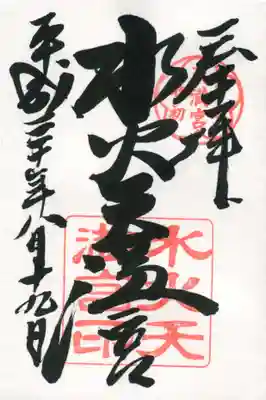 奉拝
水火天満宮
水火天
満宮印
平成三十年八月十九日